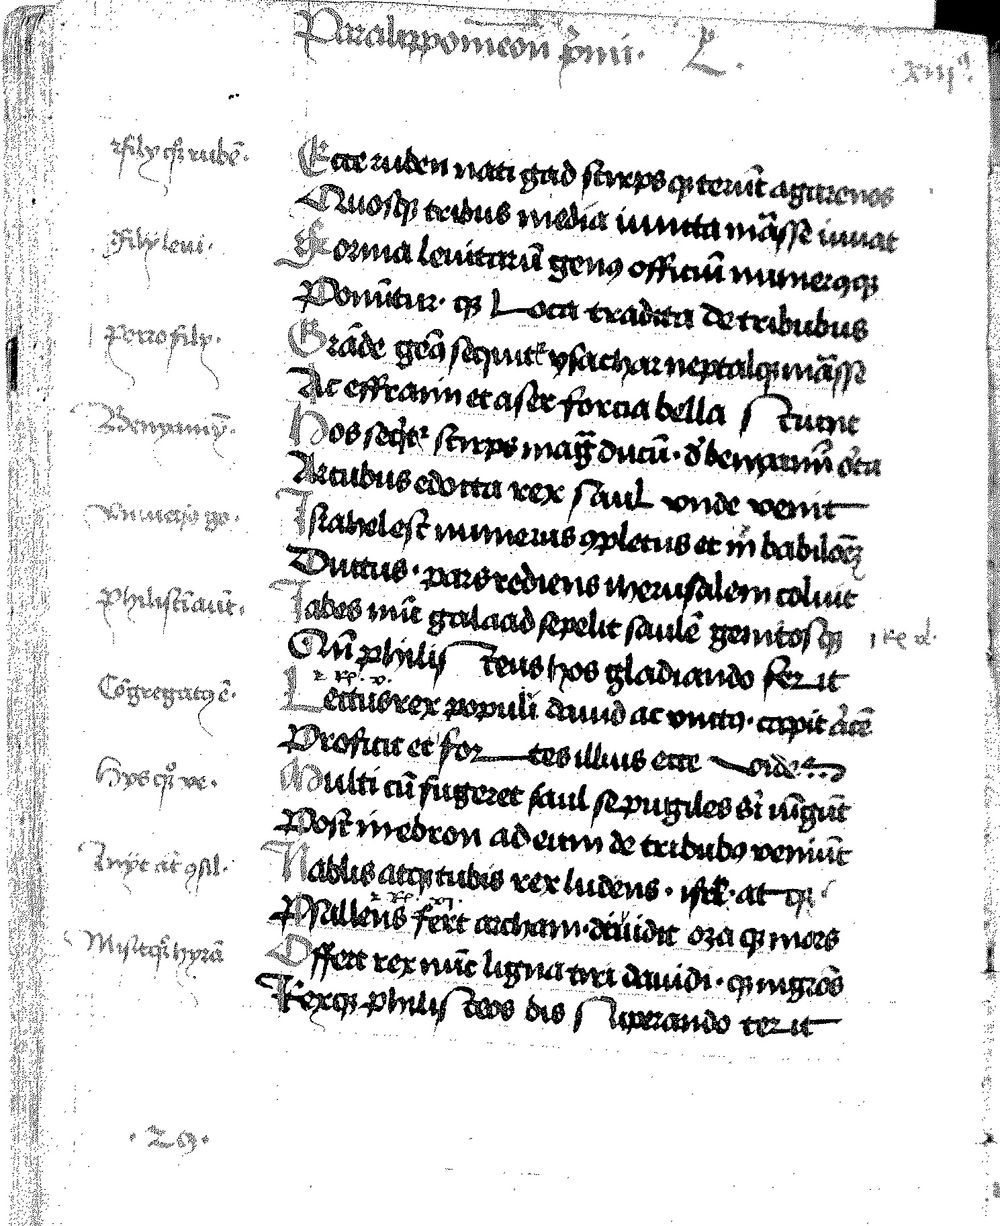 Paralippomenon primi · L ·
xiii
Et filii quoque ruben ·
Ecce ruben nati gad stirps quoque terunt agarenos
Quosque tribus media iuncta manasse iuuat
Filii leui ·
Forma leuitarum genus officium numerusque
Ponuntur · quoque Loca tradita de tribubus
Porro filii ·
Grande genus sequitur ysachar neptalque manasse
Ac effraim et aser forcia bella Stetit
Benyamin ·
Hos sequitur stirps magna ducum · de benyamin orta
Arcubus edocta rex Saul vnde venit
Vniuersus ergo ·
Israhel est numerus completus et in babilonem
Ductus · pars rediens iherusalem coluit
Philistiim autem ·
Iabes nunc galaad sepelit saulem genitosque
Cum philisteus hos gladiando ferit
Congregatus est ·
Lectus rex populi dauid ac vnctus · capit arcem
Proficit et fortes illius ecce
Hii quoque ve ·
Multi cum fugeret saul se pugiles sibi iungunt
Post in ebron ad eum de tribubus veniunt
Iniit autem consil ·
Nablis atque tubis rex ludens ·
Psallens fert archam · diuidit oza quoque mors
Misitque hyram
Offert rex nunc ligna tiri dauidi · quoque
Rexque philisteos bis Superando terit